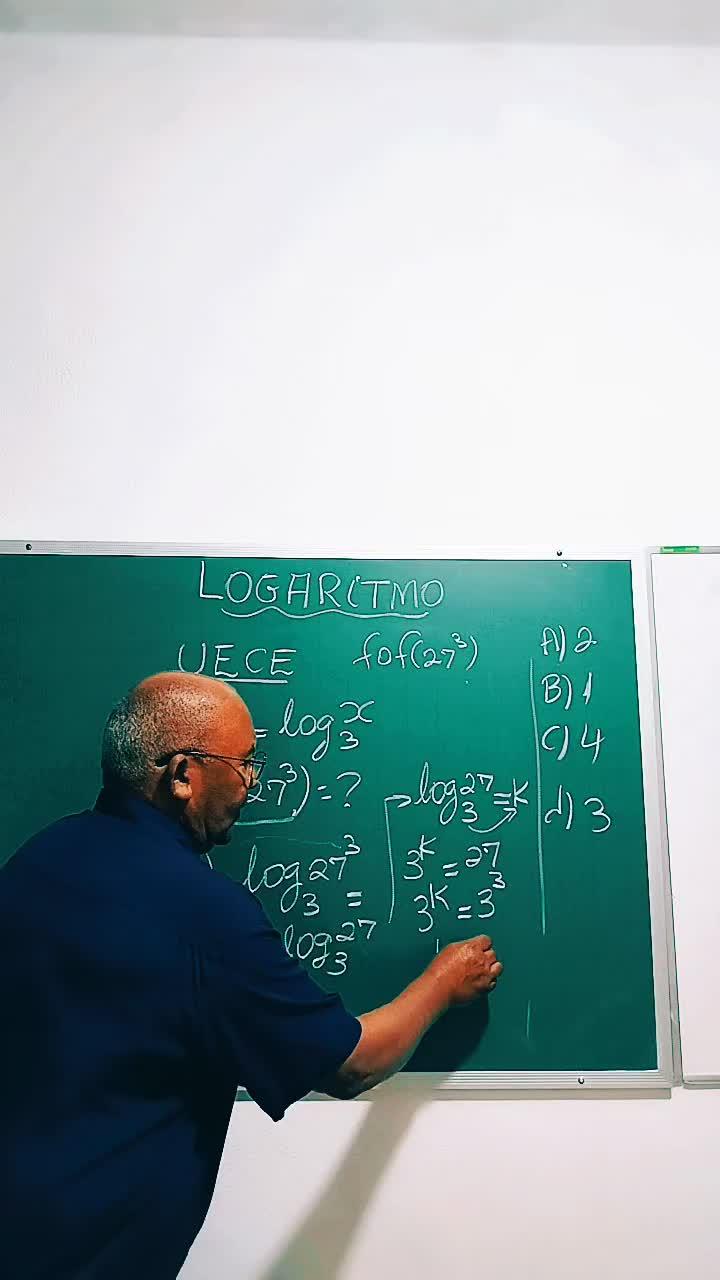 LOGARITMO
UECE fof(27³)
= log₃x
27³) = ?
log₃27³ =
log₃27
log₃27 = k
3ᵏ = 27
3ᵏ = 3³
A) 2
B) 1
C) 4
d) 3